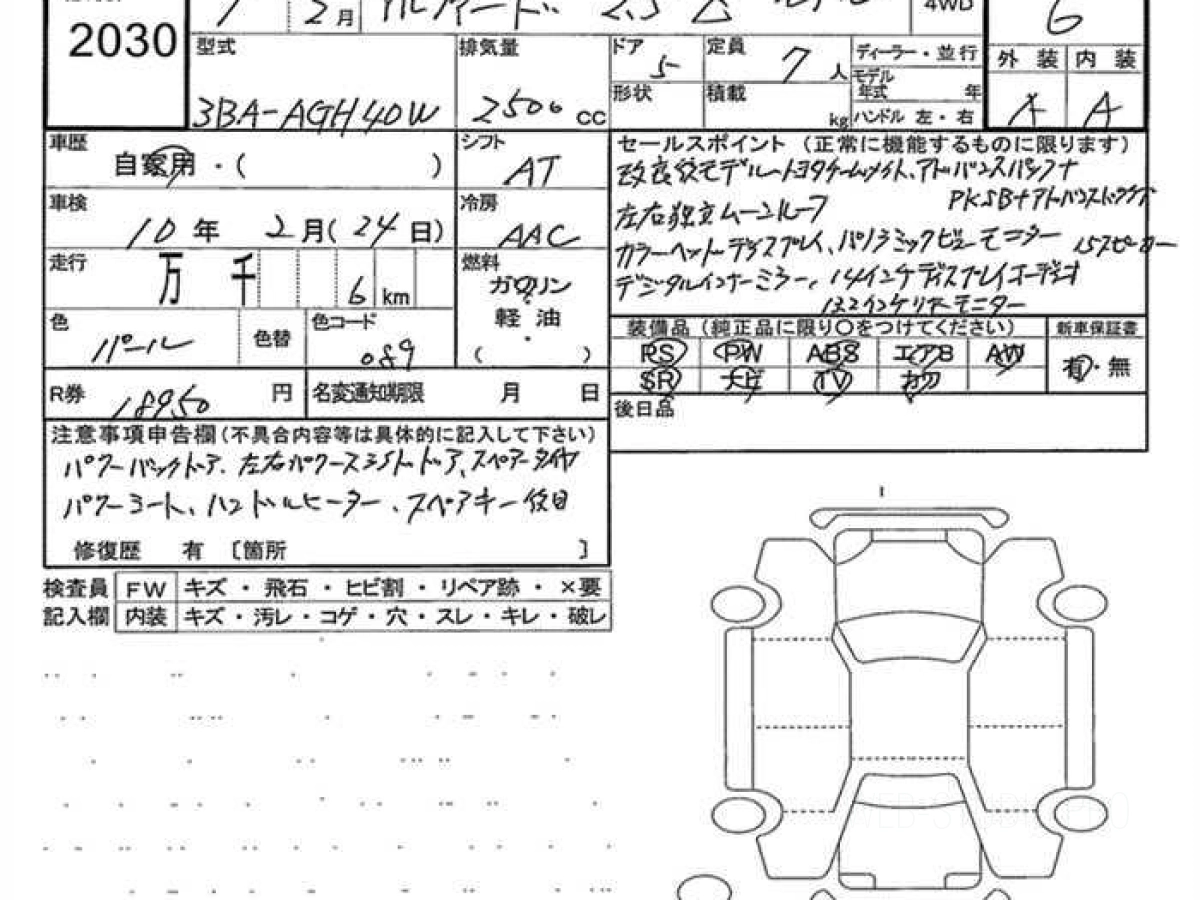 7 2月 アルファード 2.5 Z 4WD
2030
6
型式
3BA-AGH40W
排気量
2500 cc
ドア 5
定員 7 人
形状
積載 kg
ディーラー・並行
モデル年式 年
ハンドル 左・右
外装 内装
A
車歴
自家用・( )
シフト
AT
車検
10年 2月(24日)
冷房
AAC
走行
万 千 6 km
燃料
ガソリン
軽油
( ・ )
色
パール
色替
色コード
089
R券 18950 円
名変通知期限 月 日
セールスポイント(正常に機能するものに限ります)
改良後モデル、トヨタチームメイト、アドバンスパック
PKSB+アドバンスドドライブ
左右独立ムーンルーフ
カラーヘッドディスプレイ、パノラミックビューモニター 15スピーカー
デジタルインナーミラー、14インチディスプレイオーディオ
13.2インチリヤモニター
装備品(純正品に限り○をつけてください)
新車保証書
RS PW ABS エアB AW
SR ナビ TV カワ
有・無
後日品
注意事項申告欄(不具合内容等は具体的に記入して下さい)
パワーバックドア、左右パワースライドドア、スペアータイヤ
パワーシート、ハンドルヒーター、スペアキー後日
修復歴 有 〔箇所 〕
検査員 FW キズ・飛石・ヒビ割・リペア跡・×要
記入欄 内装 キズ・汚レ・コゲ・穴・スレ・キレ・破レ